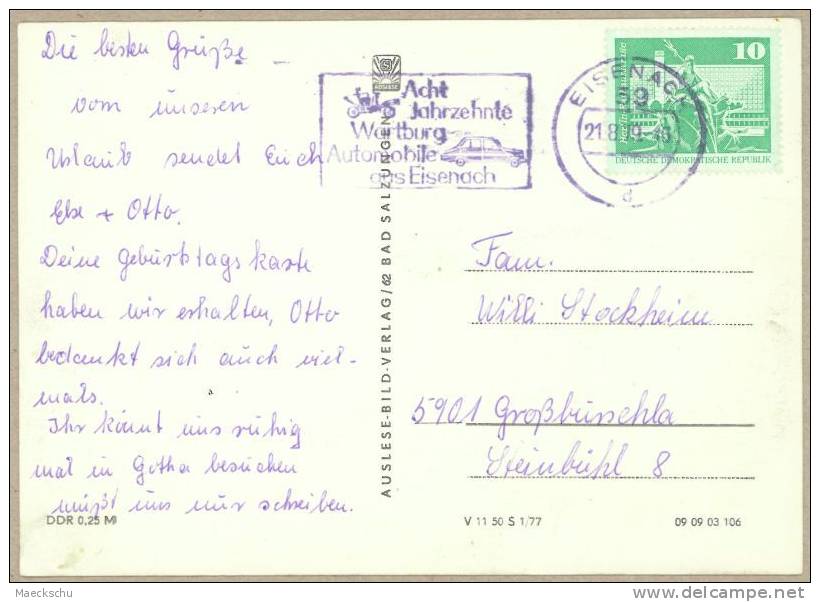 Die besten Grüße
vom unseren
Urlaub sendet Euch
Else + Otto.
Deine Geburtstagskarte
haben wir erhalten, Otto
bedankt sich auch viel-
mals.
Ihr könnt uns ruhig
mal in Gotha besuchen
müßt uns nur schreiben.
DDR 0,25 M
AUSLESE-BILD-VERLAG/62 BAD SALZUNGEN
AUSLESE
Acht
Jahrzehnte
Wartburg
Automobile
aus Eisenach
EISENACH
59
21.8.
d
10
DEUTSCHE DEMOKRATISCHE REPUBLIK
Fam.
Willi Stockheim
5901 Großburschla
Steinbühl 8
V 11 50 S 1/77
09 09 03 106
Maeckschu
delcampe.net